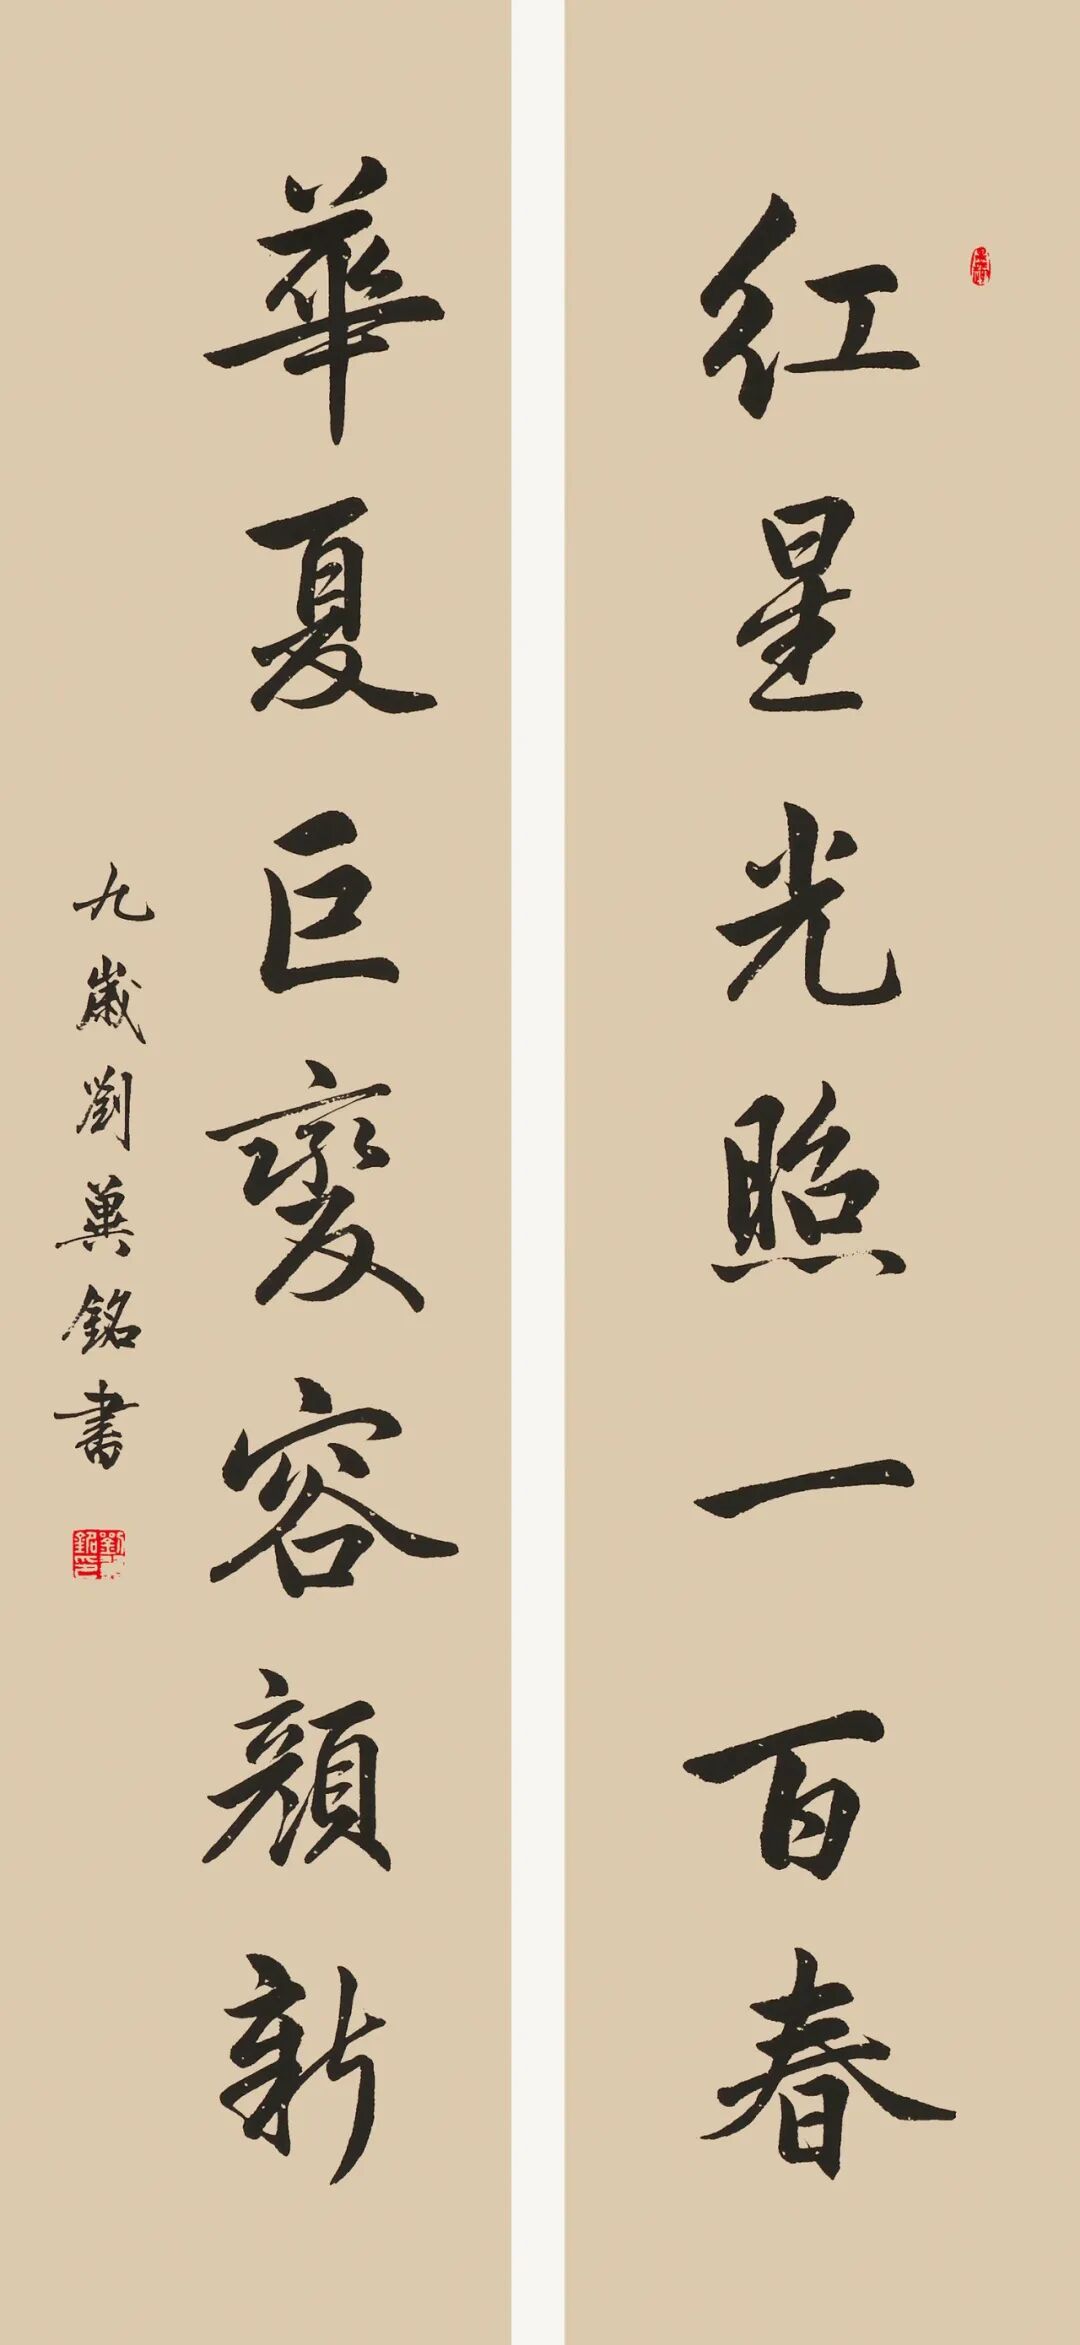 红星光照一百春
華夏巨變容顏新
九歲劉冀銘書